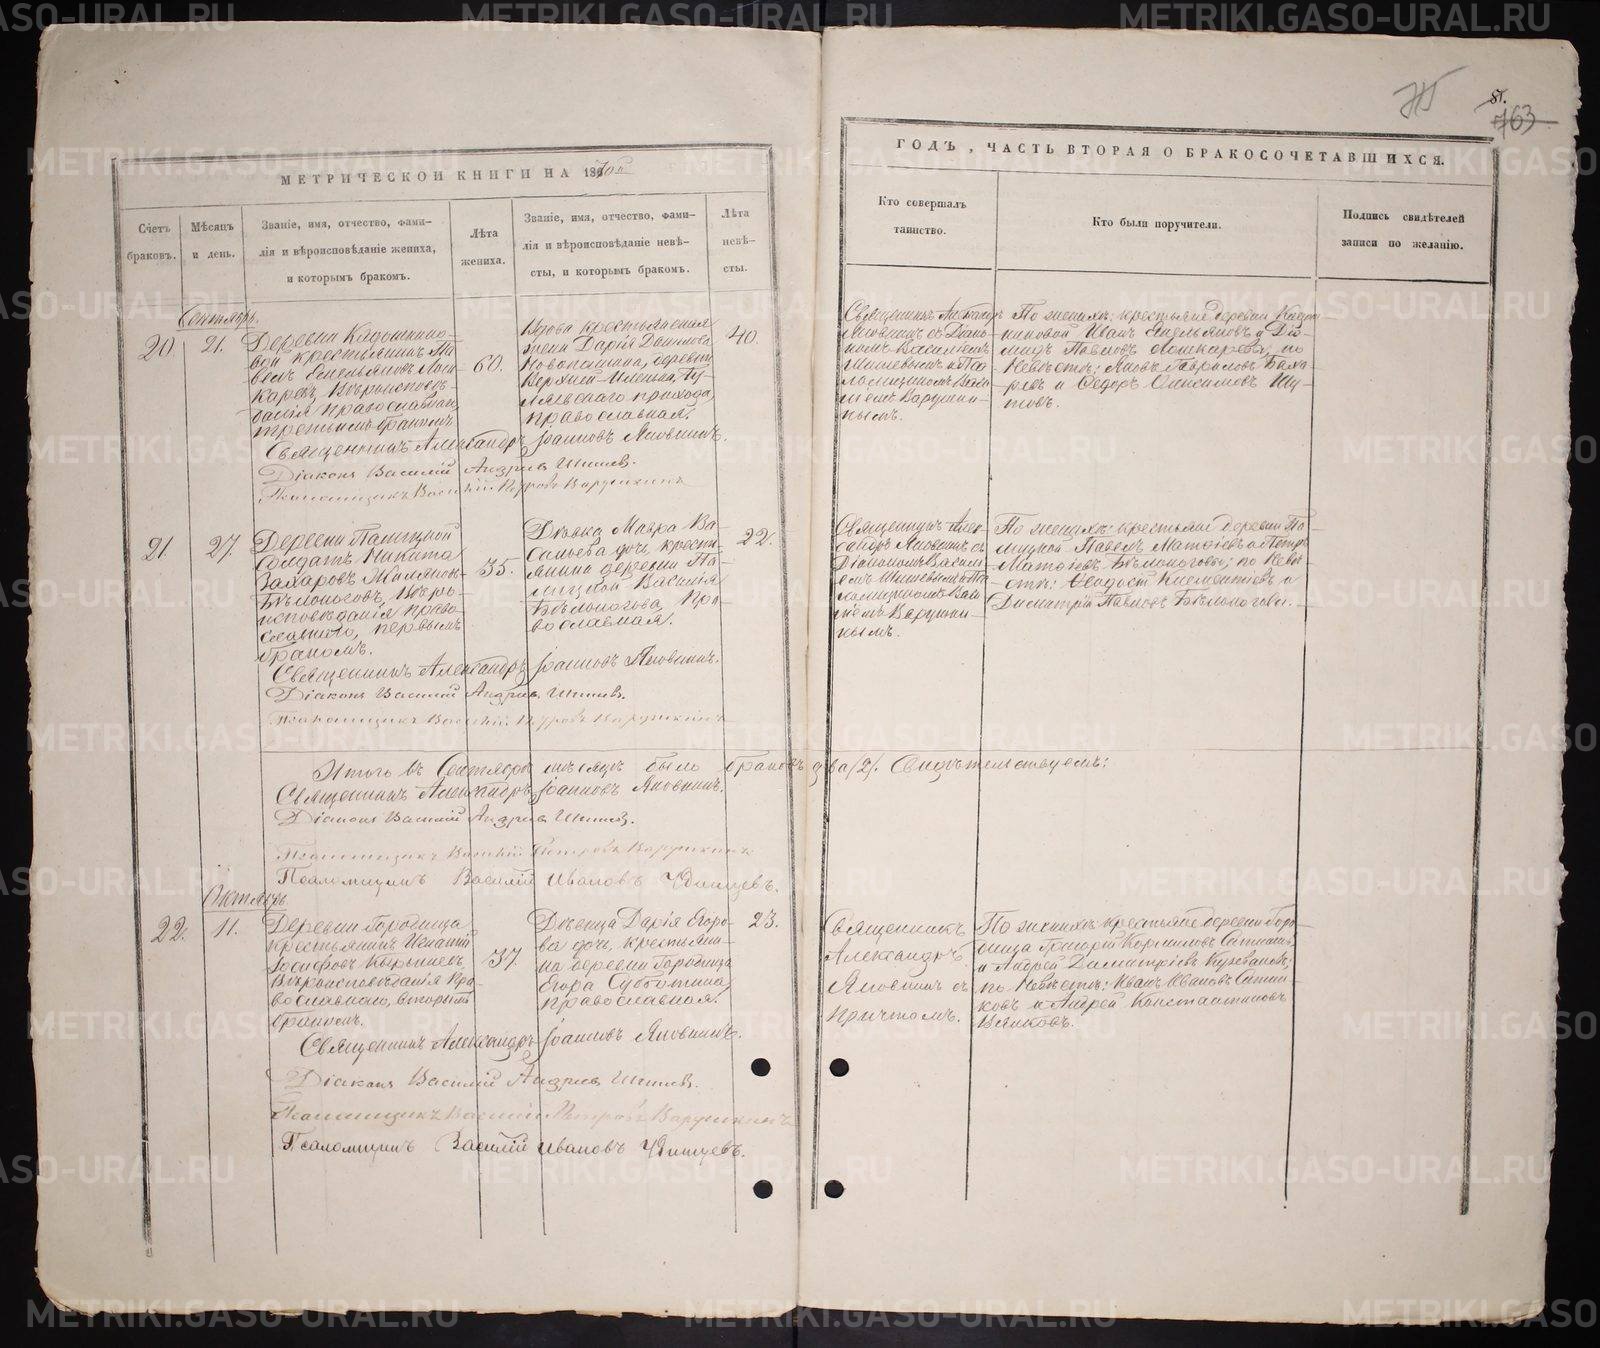 81.
763
МЕТРИЧЕСКОЙ КНИГИ НА 1870й
ГОДЪ, ЧАСТЬ ВТОРАЯ О БРАКОСОЧЕТАВШИХСЯ.
Счетъ
браковъ.
Мѣсяцъ
и день.
Званіе, имя, отчество, фами-
лія и вѣроисповѣданіе жениха,
и которымъ бракомъ.
Лѣта
жениха.
Званіе, имя, отчество, фами-
лія и вѣроисповѣданіе невѣ-
сты, и которымъ бракомъ.
Лѣта
невѣ-
сты.
Кто совершалъ
таинство.
Кто были поручители.
Подпись свидѣтелей
записи по желанію.
Сентябрь.
20.
21.
крестьянинъ Па-
велъ Емельяновъ Лош-
каревъ, Вѣроисповѣ-
данія православнаго,
третьимъ бракомъ
60.
Вдова крестьянская
жена Дарія
деревни
прихода,
православная.
40.
Священникъ
Яновскій съ Діако-
номъ Василіемъ
Шишевымъ и Пса-
ломщикомъ Васи-
ліемъ Варушки-
нымъ.
По женихѣ: крестьяне деревни
Иванъ Емельяновъ и
Павловъ Лошкаревы, по
Невѣстѣ: Яковъ Гавриловъ
и Ѳедоръ Анисимовъ Шу-
товъ.
Священникъ Александръ Іоанновъ Яновскій.
Діаконъ Василій Андреевъ Шишев.
Псаломщикъ Василій Петровъ Варушкинъ
21.
27.
Деревни
Солдатъ Никита
Захаровъ
Бѣлоноговъ, Вѣро-
исповѣданія право-
славнаго, первымъ
бракомъ.
35.
Дѣвка Мавра Ва-
сильева дочь, крестья-
янина деревни
Василія
Бѣлоногова, Пра-
вославная.
22.
Священникъ Алек-
сандръ Яновскій съ
Діакономъ Васили-
емъ Шишевымъ и Пса-
ломщикомъ Васи-
ліемъ Варушки-
нымъ.
По женихѣ: крестьяне деревни
Павелъ Матвѣевъ и Петръ
Матвѣевъ Бѣлоноговы; по Невѣ-
стѣ: Климентіевъ и
Димитрій Павловъ Бѣлоноговы.
Священникъ Александръ Іоанновъ Яновскій.
Діаконъ Василій Андреевъ Шишев.
Псаломщикъ Василій Петровъ Варушкинъ
Итого въ Сентябрѣ мѣсяцѣ было браковъ два (2). Свидѣтельствуемъ:
Священникъ Александръ Іоанновъ Яновскій.
Діаконъ Василій Андреевъ Шишев.
Псаломщикъ Василій Петровъ Варушкинъ
Псаломщикъ Василій Ивановъ Удинцевъ.
Октябрь
22.
11.
Деревни Городища
крестьянинъ Игнатій
Іосифовъ
Вѣроисповѣданія Пра-
вославнаго, вторымъ
бракомъ.
37.
Дѣвица Дарія Егоро-
ва дочь, крестьяни-
на деревни Городища
Егора Субботина,
православная.
23.
Священникъ
Александръ
Яновскій съ
причтомъ.
По женихѣ: крестьяне деревни Горо-
дища Григорій Корниловъ
и Андрей Димитріевъ
по Невѣстѣ: Иванъ Ивановъ
ковъ и Андрей Константиновъ
Священникъ Александръ Іоанновъ Яновскій.
Діаконъ Василій Андреевъ Шишев.
Псаломщикъ Василій Петровъ Варушкинъ
Псаломщикъ Василій Ивановъ Удинцевъ.
METRIKI.GASO-URAL.RU